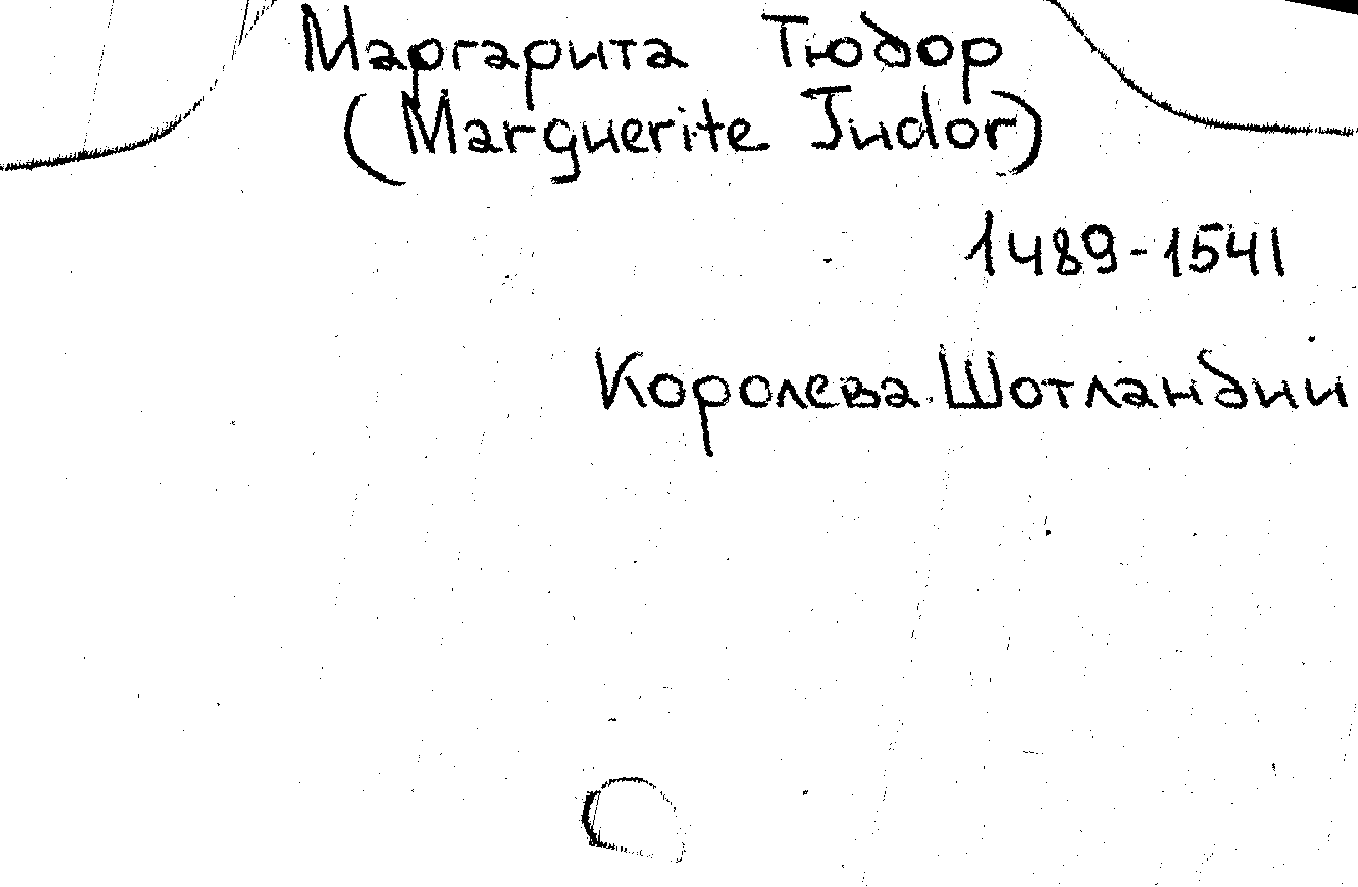 Маргарита Тюдор
(Marguerite Tudor)
1489-1541
Королева Шотландии